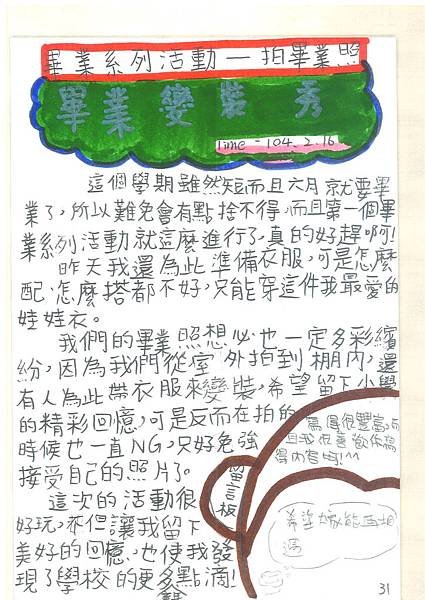 畢業系列活動—拍畢業照
畢業變裝秀
Time-104.2.16
這個學期雖然短而且六月就要畢
業了,所以難免會有點捨不得,而且第一個畢
業系列活動就這麼進行了,真的好趕啊!
昨天我還為此準備衣服,可是怎麼
配、怎麼搭都不好,只能穿這件我最愛的
娃娃衣。
我們的畢業照想必也一定多彩繽
紛,因為我們從室外拍到棚內,還
有人為此帶衣服來變裝,希望留下小學
的精彩回憶,可是反而在拍的
時候也一直NG,只好免強
接受自己的照片了。
這次的活動很
好玩,不但讓我留下
美好的回憶,也使我發
現了學校的更多點滴!
留言板
寫得很豐富,而
且我很喜歡你寫
得內容喲!^^
希望
能再相
31